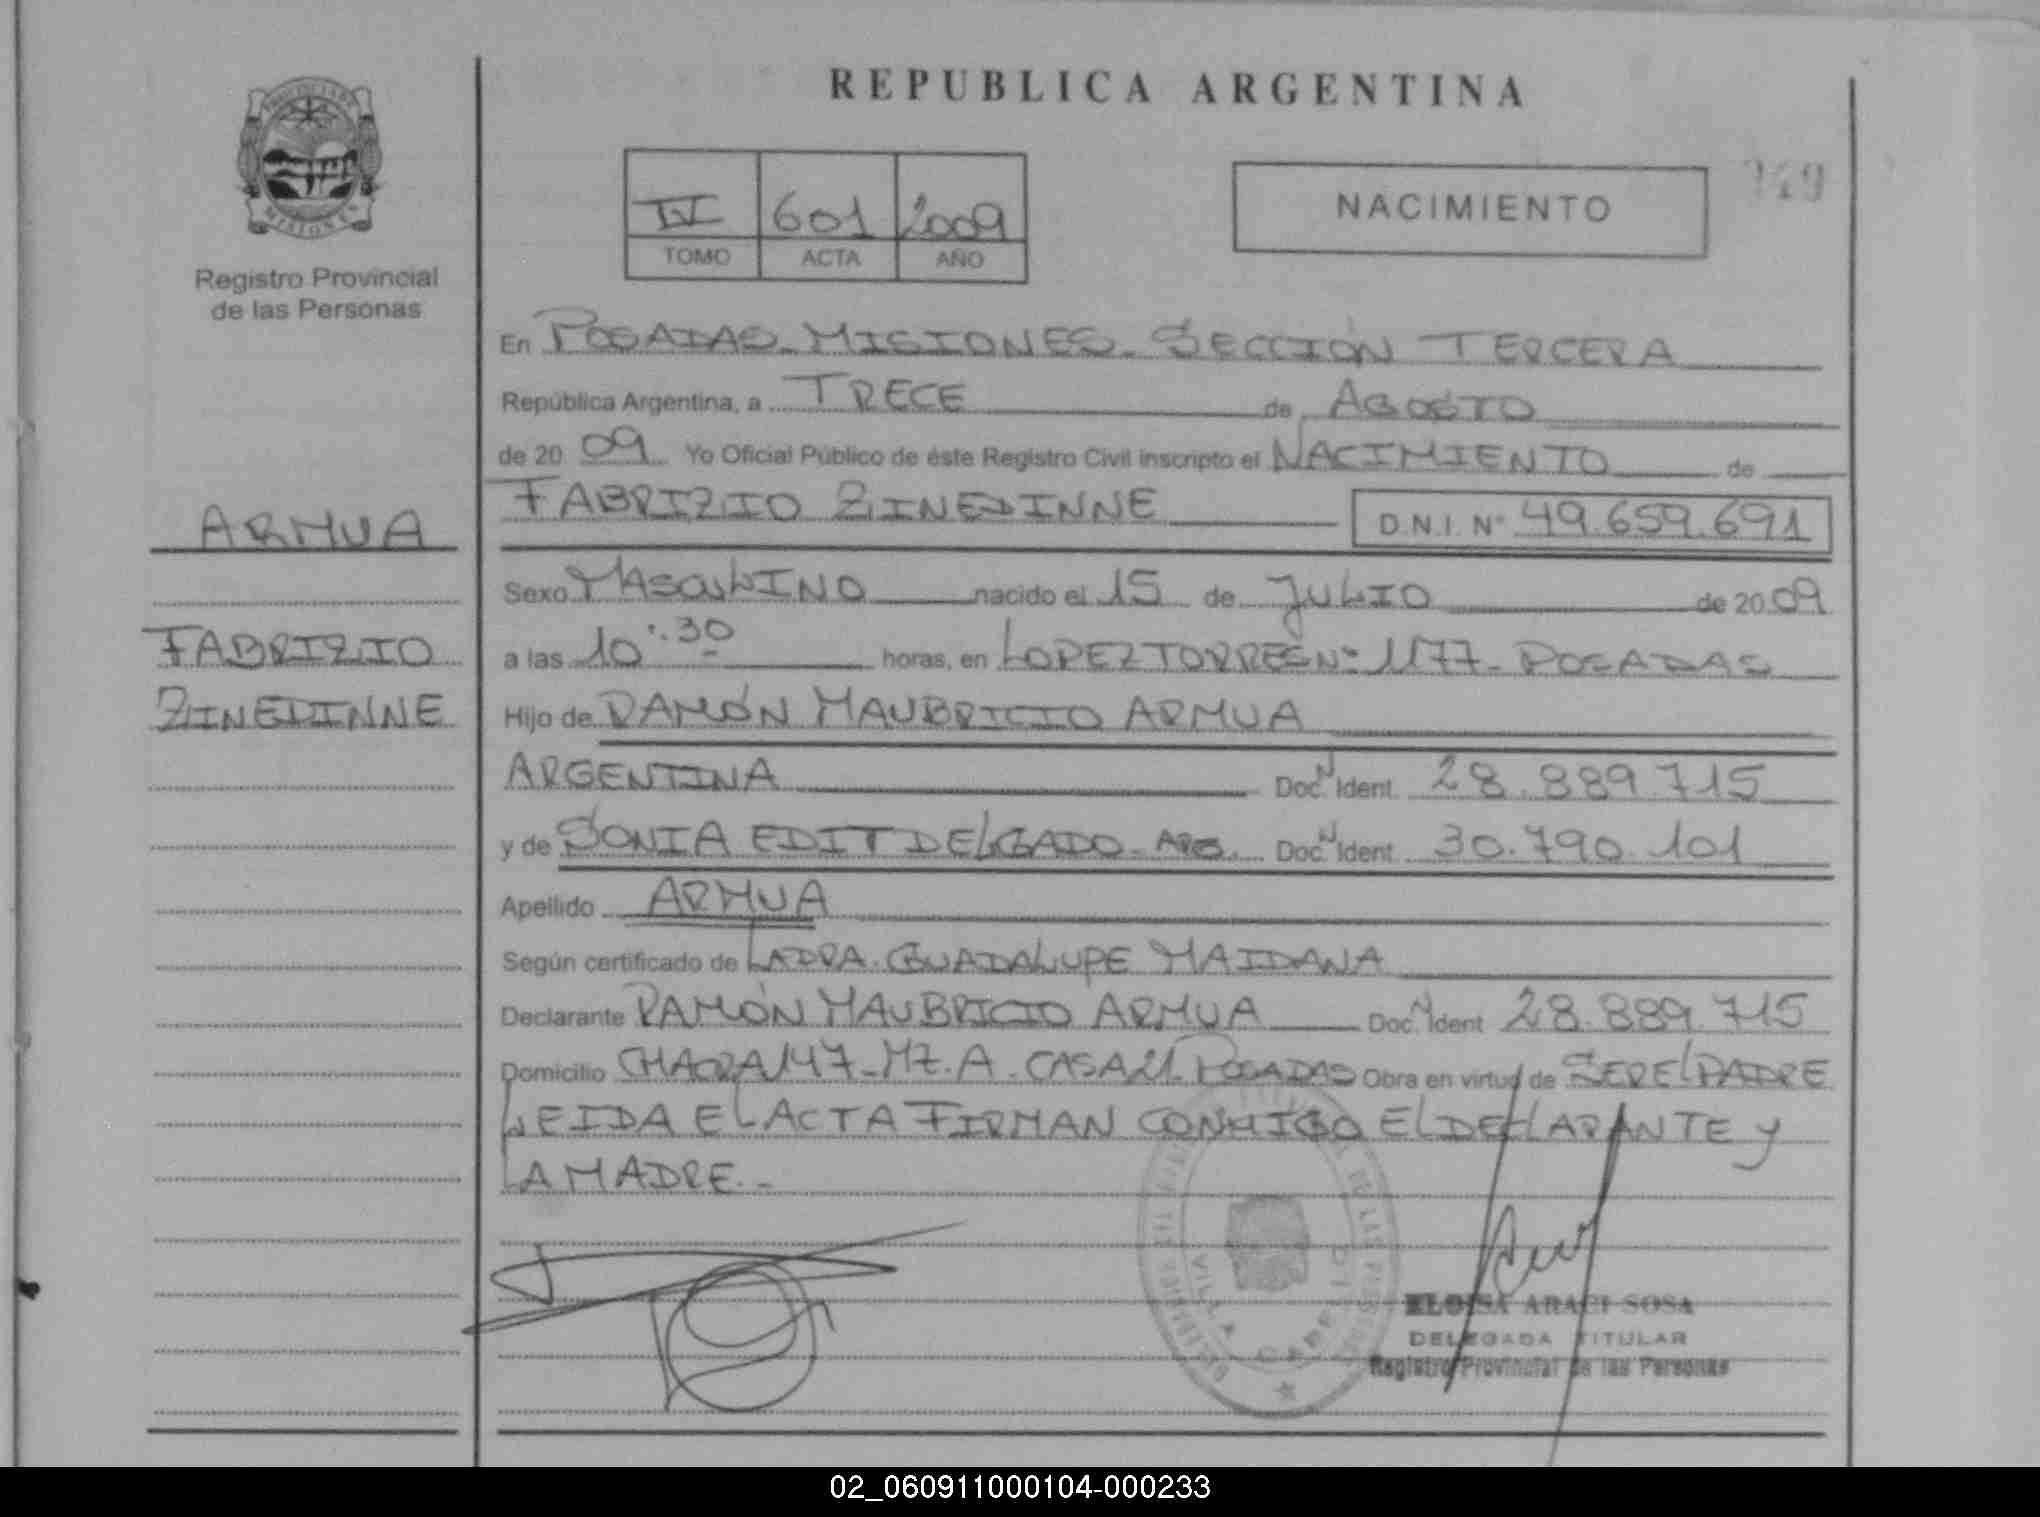 REPUBLICA ARGENTINA
PROVINCIA DE
MISIONES
Registro Provincial
de las Personas
IV 601 2009
TOMO ACTA AÑO
NACIMIENTO
En POSADAS - MISIONES - SECCIÓN TERCERA
República Argentina, a TRECE de AGOSTO
de 20 09 Yo Oficial Público de éste Registro Civil inscripto el NACIMIENTO de
FABRIZIO ZINEDINNE D.N.I. Nº 49.659.691
ARMUA
Sexo MASCULINO nacido el 15 de JULIO de 20 09
FABRIZIO
a las 10:30 horas, en LOPEZ TORRES Nº 1177 - POSADAS
ZINEDINNE
Hijo de RAMÓN MAUBRICIO ARMUA
ARGENTINA Doc. N Ident. 28.889.715
y de SONIA EDIT DELGADO - ARG. Doc. N Ident. 30.790.101
Apellido ARMUA
Según certificado de LA DRA. GUADALUPE MAIDANA
Declarante RAMÓN MAUBRICIO ARMUA Doc. N Ident 28.889.715
Domicilio CHACRA 147 - MZ. A. CASA 21. POSADAS Obra en virtud de SER EL PADRE
LEIDA EL ACTA FIRMAN CONMIGO EL DECLARANTE y
LA MADRE. -
VILLA CABELLO
ELOISA ARACI SOSA
DELEGADA TITULAR
Registro Provincial de las Personas
02_060911000104-000233